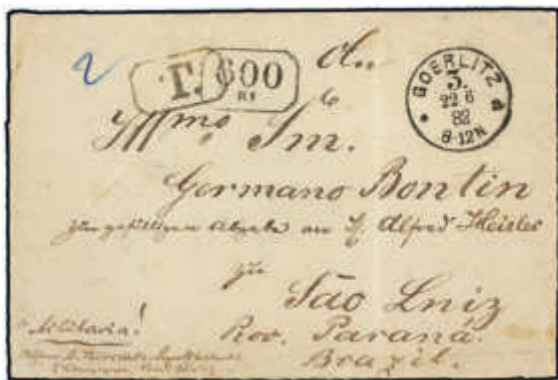 2
T. 600
Rs
GOERLITZ
3.
22 6
82
8-12N
Illmo Sm.
Germano Bontin
zur gefälligen Abgabe an H. Alfred Heisler
zu
São Lniz
Rov. Paraná.
Brazil.
Militaria!